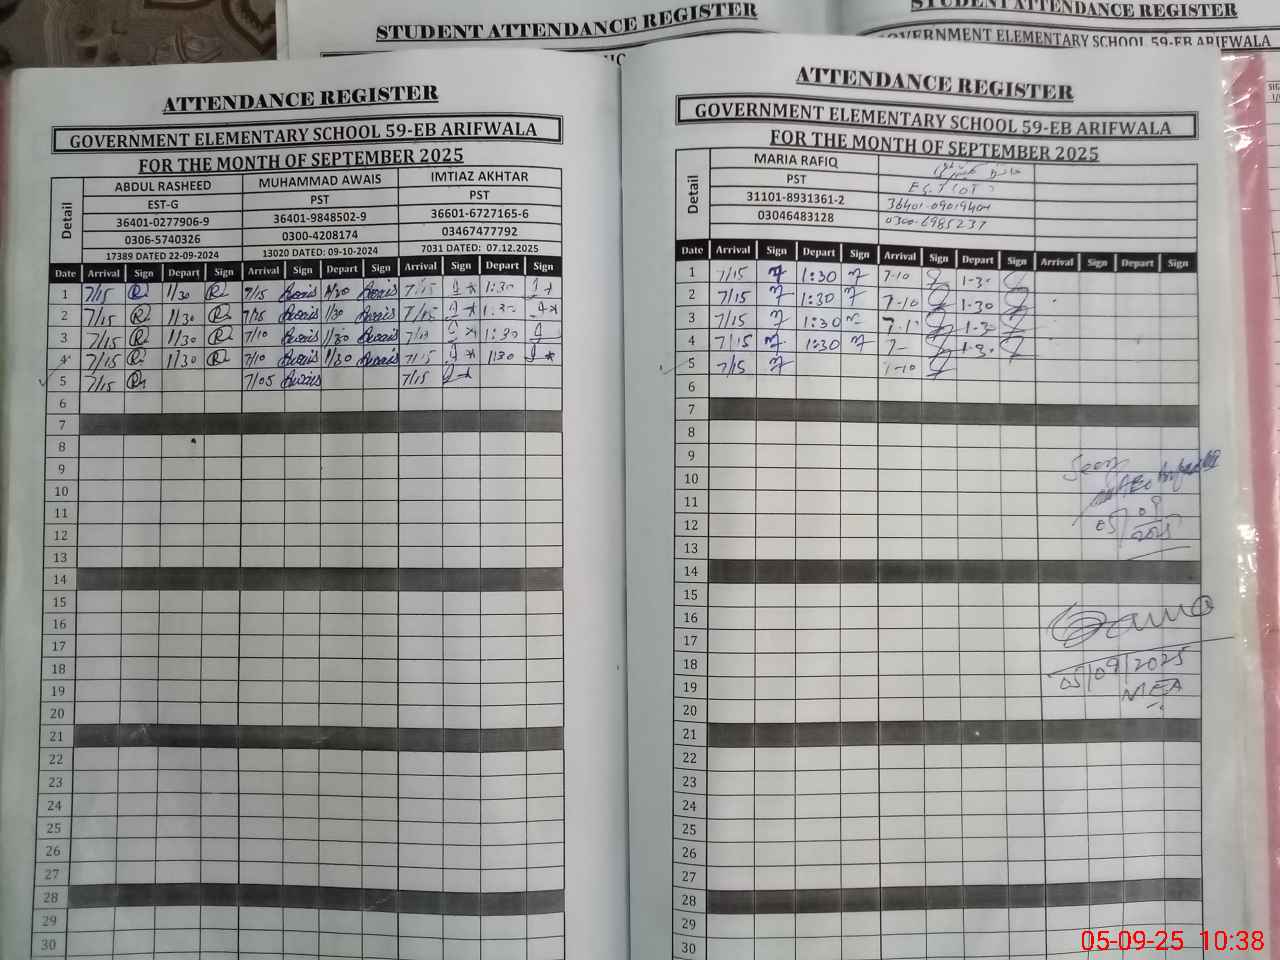 STUDENT ATTENDANCE REGISTER
STUDENT ATTENDANCE REGISTER
GOVERNMENT ELEMENTARY SCHOOL 59-EB ARIFWALA
ATTENDANCE REGISTER
GOVERNMENT ELEMENTARY SCHOOL 59-EB ARIFWALA
FOR THE MONTH OF SEPTEMBER 2025
Detail ABDUL RASHEED MUHAMMAD AWAIS IMTIAZ AKHTAR
EST-G PST PST
36401-0277906-9 36401-9848502-9 36601-6727165-6
0306-5740326 0300-4208174 03467477792
17389 DATED 22-09-2024 13020 DATED: 09-10-2024 7031 DATED: 07.12.2025
Date Arrival Sign Depart Sign Arrival Sign Depart Sign Arrival Sign Depart Sign
1 7/15 1/30 7/15 Awais 1/30 Awais 7/15 1:30
2 7/15 1/30 7/15 Awais 1/30 Awais 7/15
3 7/15 1/30 7/10 Awais 1/30 Awais 1:30
4 7/15 1/30 7/10 Awais 1/30 Awais 7/15 1/30
5 7/15 7/05 Awais 7/15
6
7
8
9
10
11
12
13
14
15
16
17
18
19
20
21
22
23
24
25
26
27
28
29
30
ATTENDANCE REGISTER
GOVERNMENT ELEMENTARY SCHOOL 59-EB ARIFWALA
FOR THE MONTH OF SEPTEMBER 2025
Detail MARIA RAFIQ
PST
31101-8931361-2
03046483128 0300-6985237
Date Arrival Sign Depart Sign Arrival Sign Depart Sign Arrival Sign Depart Sign
1 7/15 1:30 7-10 1-30
2 7/15 1:30 7-10 1-30
3 7/15 1:30 1-30
4 7/15 1:30 1-30
5 7/15 7-10
6
7
8
9
10
11
12
13
14
15
16
17
18
19
20
21
22
23
24
25
26
27
28
29
30
Seen
05/09
2025
05/09/2025
MEA
05-09-25 10:38